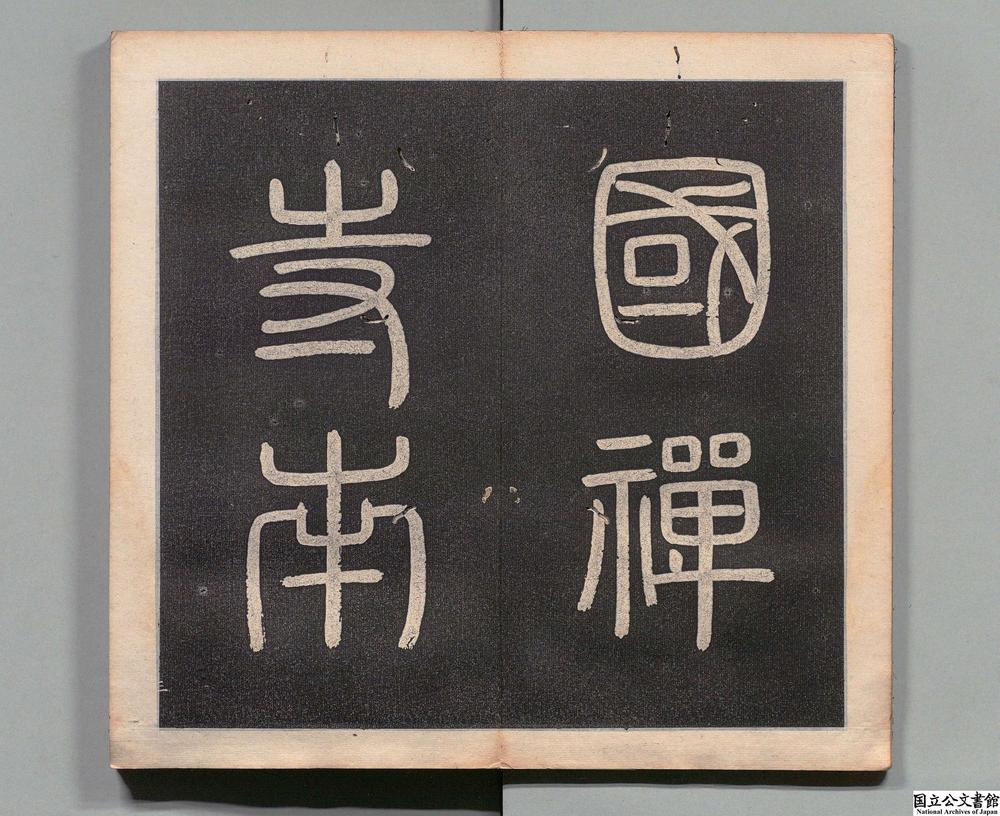 國禪
寺南
国立公文書館
National Archives of Japan